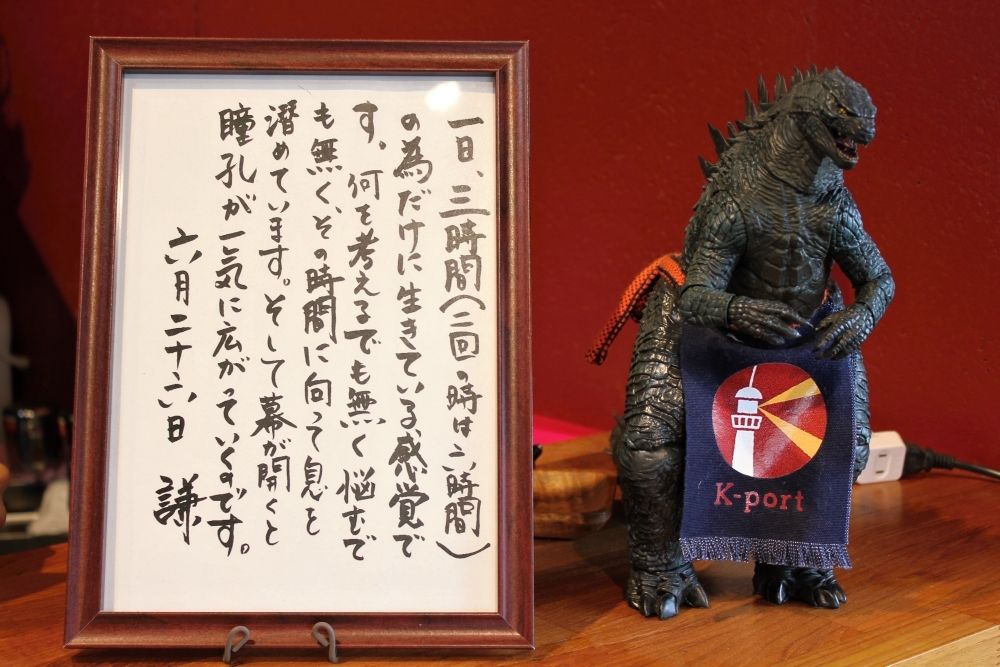 一日、三時間（二回の時は六時間）
の為だけに生きている感覚で
す。何を考えるでも無く悩むで
も無く、その時間に向って息を
潜めています。そして幕が開くと
瞳孔が一気に広がっていくのです。
六月二十六日 謙
K-port